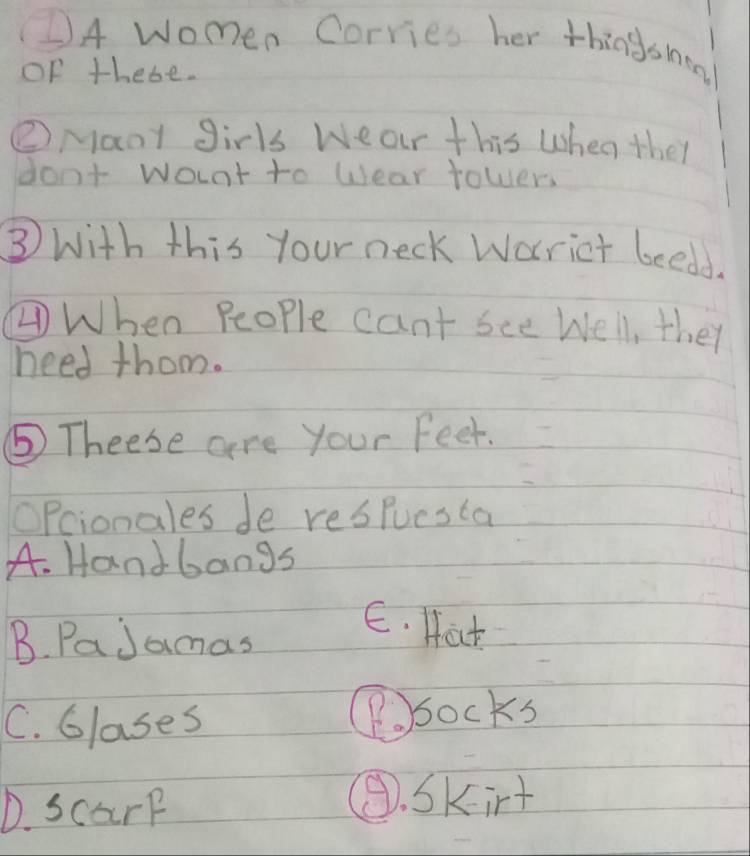 1) A Women Carries her things in one
of these.
2 Many girls Wear this when they
dont want to wear tower.
3 With this your neck Warict beedd.
4 When People cant see Well, they
need thom.
5 Theese are your Feet.
OPcionales de respuesta
A. Handbangs
B. Pajamas
E. Hat
C. Glases
F. socks
D. scarf
g. Skirt